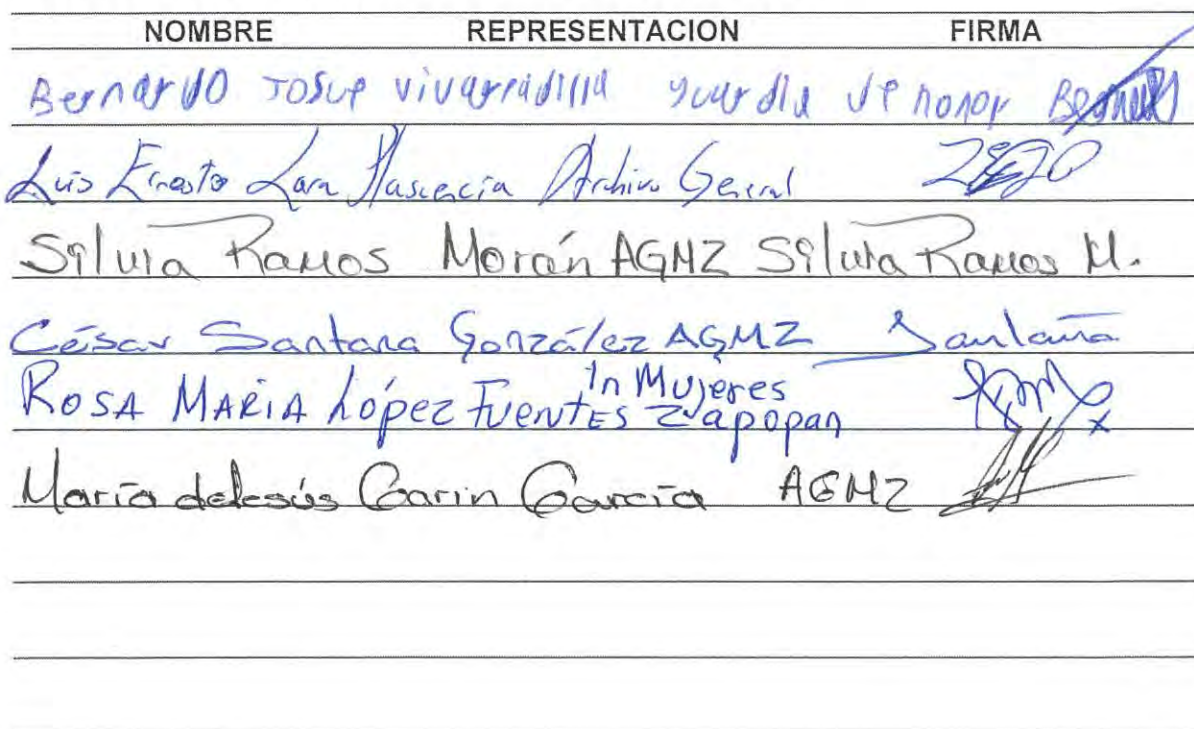 NOMBRE REPRESENTACION FIRMA
Bernardo Josue vivar padilla guardia de honor
Luis Ernesto Lara Plascencia Archivo General
Silvia Ramos Morán AGMZ Silvia Ramos M.
César Santana González AGMZ Santana
ROSA MARIA López FUENTES In Mujeres Zapopan
María de Jesús Garin García AGMZ